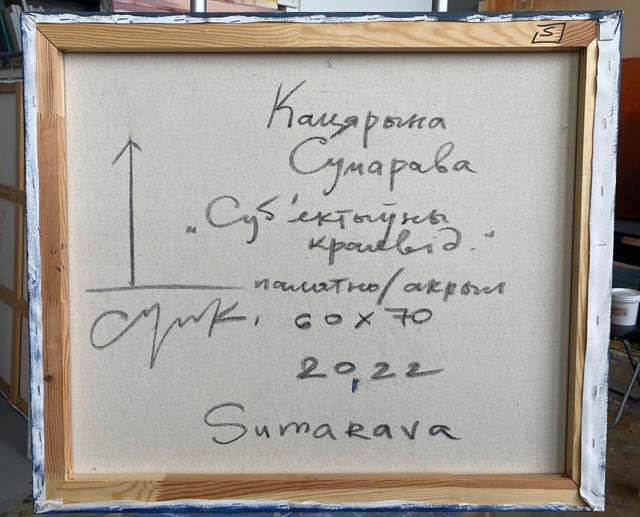 S
Кацярына
Сумарава
„Суб'ектыўны
краявід."
палатно/акрыл
60 x 70
20,22
Sumarava